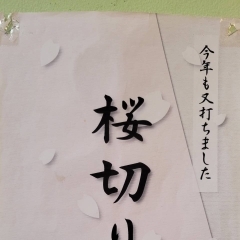 今年も又打ちました
桜切り